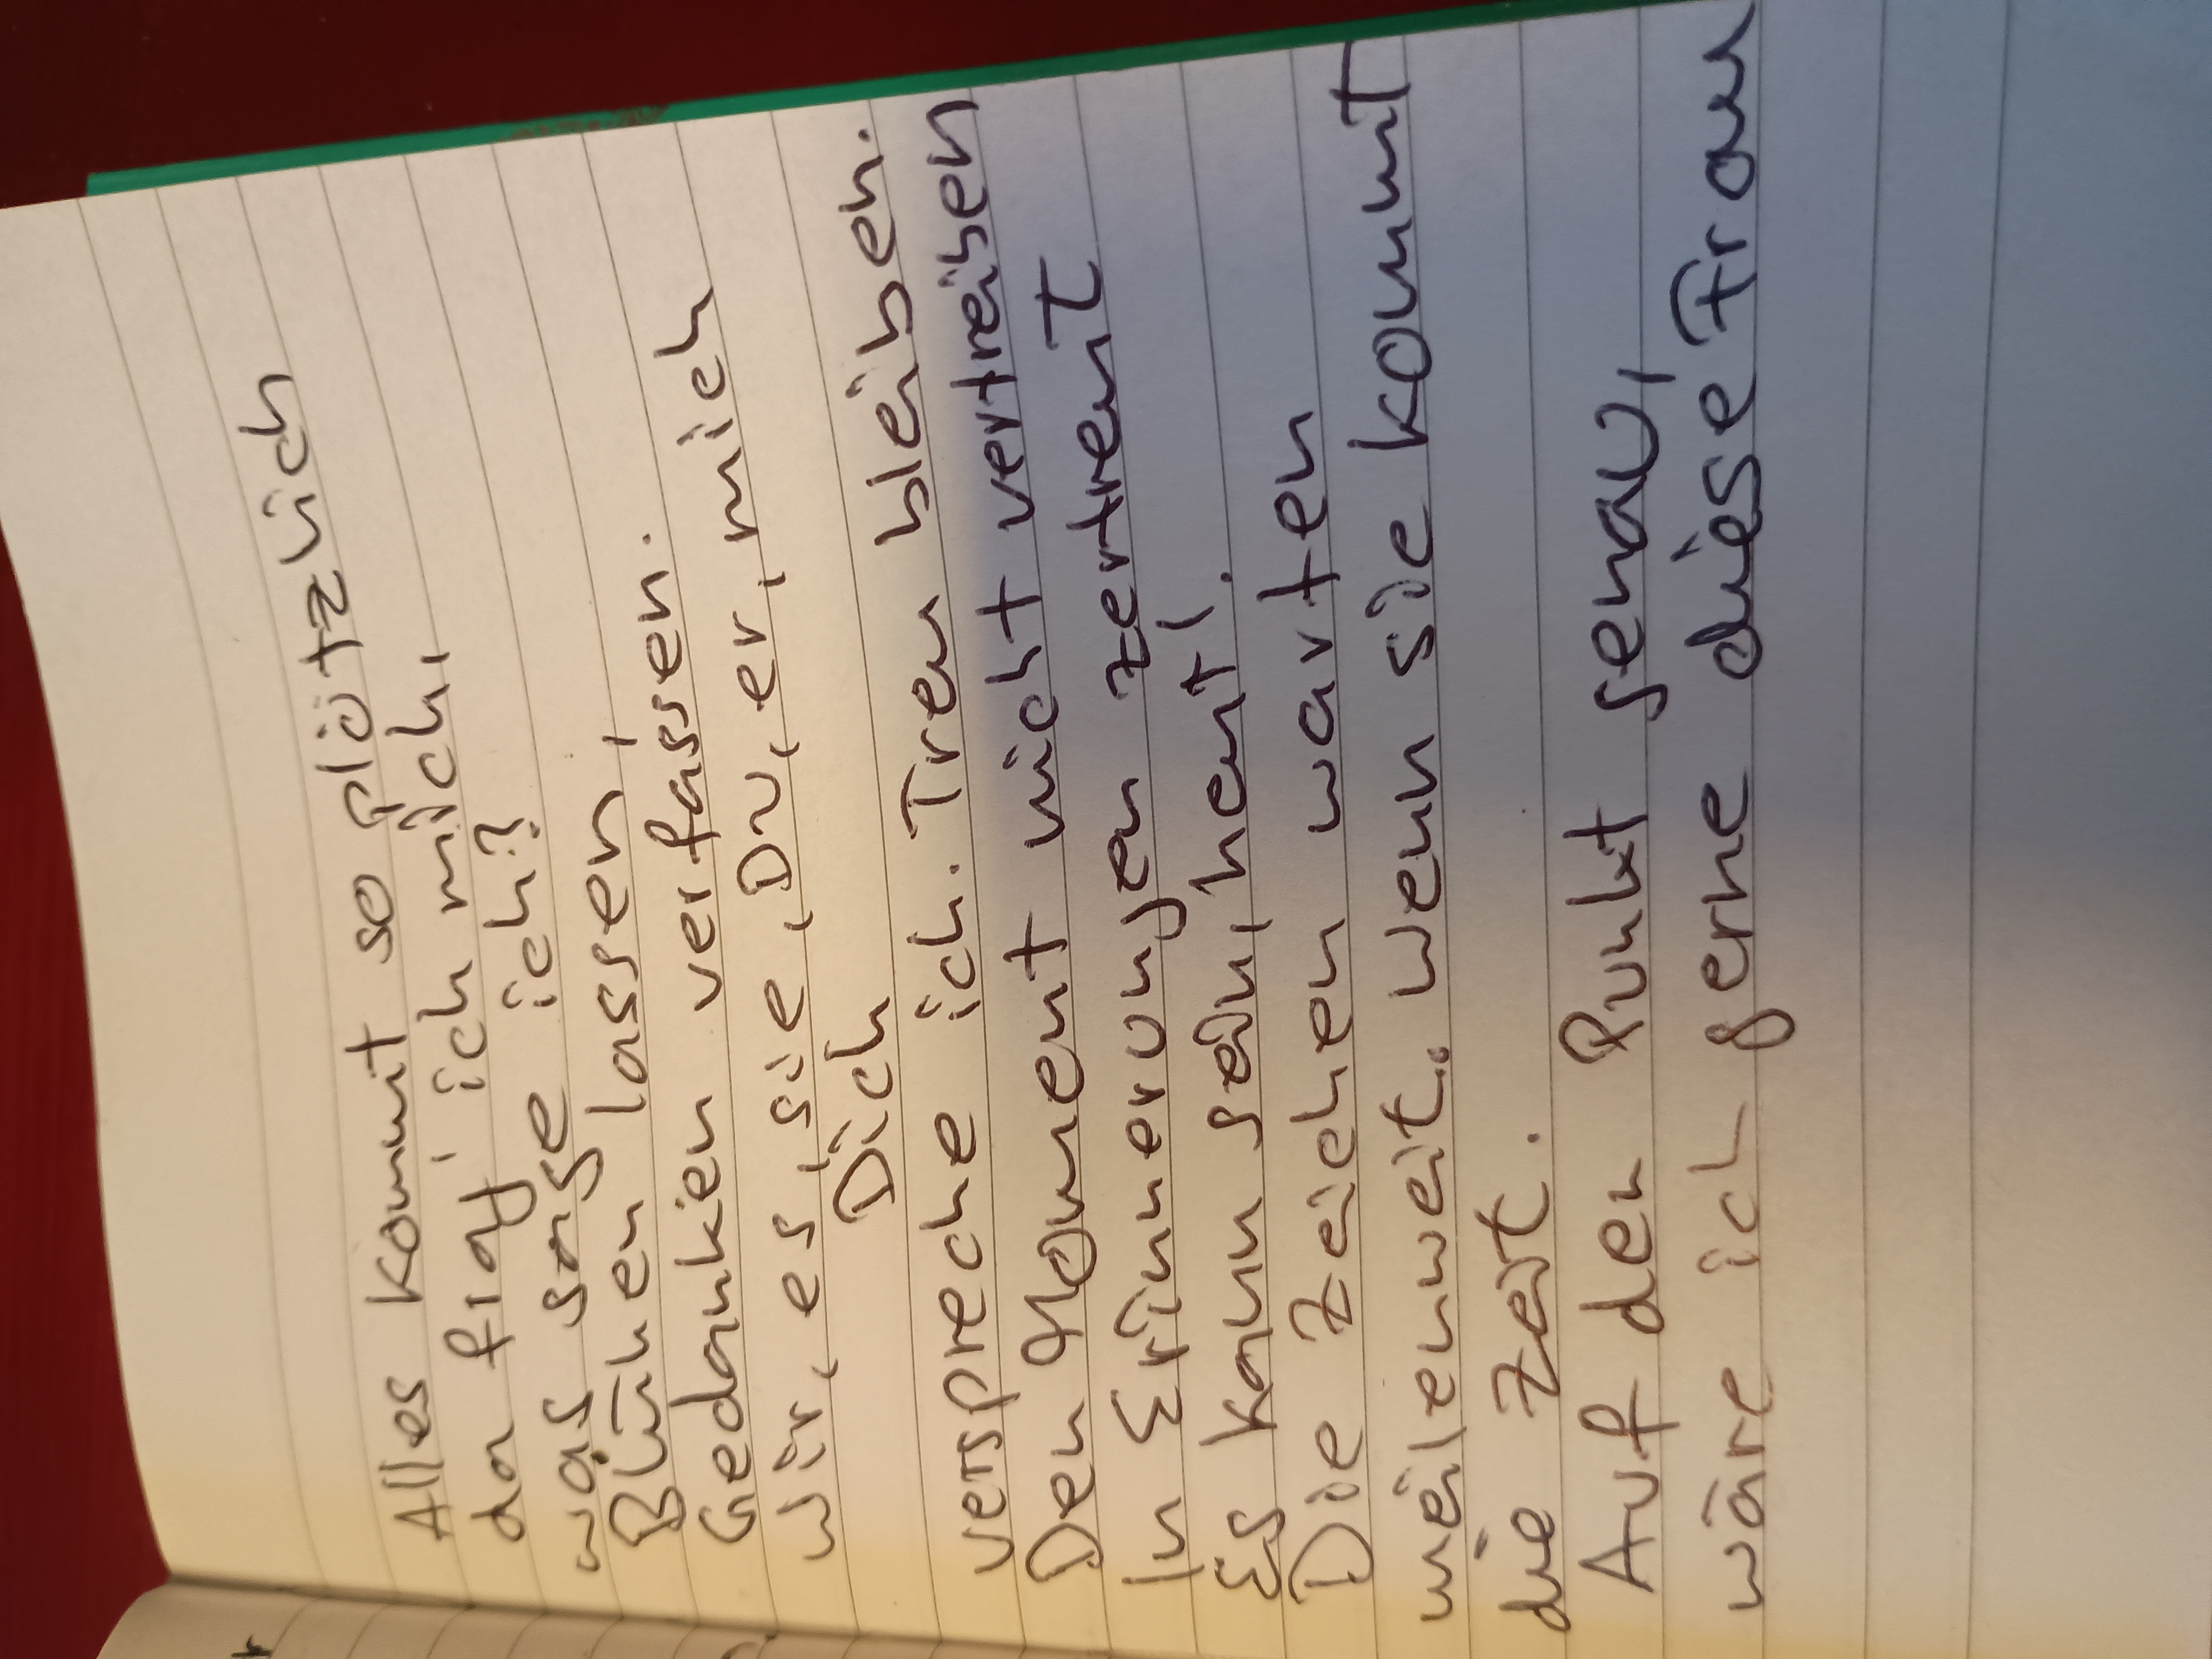 Alles kommt so plötzlich
da frag' ich mich,
was sage ich?
Blühen lassen,
Gedanken verfassen.
wir, es, sie, Du, er, mich
Dich
verspreche ich. Treu bleiben.
Den Moment nicht vertreiben
In Erinnerungen zertrent
Es kann sein, heut'.
Die Zeichen warten
meilenweit. wenn sie kommt
die Zeit.
Auf den Punkt genau,
wäre ich gerne diese Frau